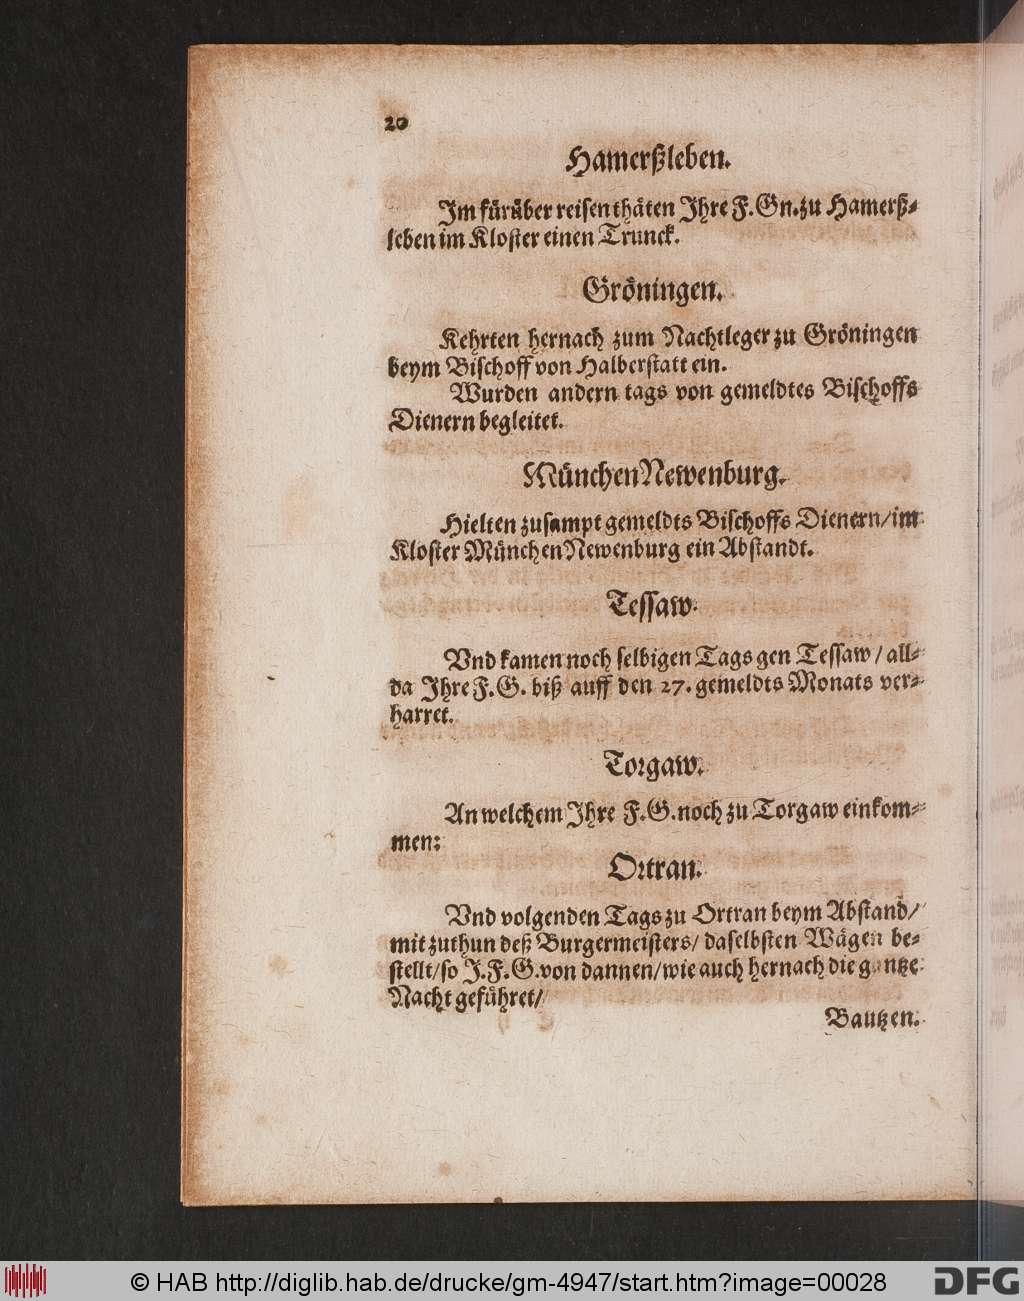 20
Hamerßleben.
Im fürüber reisen thäten Ihre F. Gn. zu Hamerß-
leben im Kloster einen Trunck.
Gröningen.
Kehrten hernach zum Nachtleger zu Gröningen
beym Bischoff von Halberstatt ein.
Wurden andern tags von gemeldtes Bischoffs
Dienern begleitet.
München Newenburg.
Hielten zusampt gemeldts Bischoffs Dienern/ im
Kloster München Newenburg ein Abstandt.
Tessaw.
Vnd kamen noch selbigen Tags gen Tessaw / all-
da Ihre F. G. biß auff den 27. gemeldts Monats ver-
harret.
Torgaw.
An welchem Ihre F. G. noch zu Torgaw einkom-
men:
Ortran.
Vnd volgenden Tags zu Ortran beym Abstand/
mit zuthun deß Burgermeisters/ daselbsten Wägen be-
stellt/ so J. F. G. von dannen/ wie auch hernach die gantze
Nacht geführet/
Bautzen.
© HAB http://diglib.hab.de/drucke/gm-4947/start.htm?image=00028
DFG